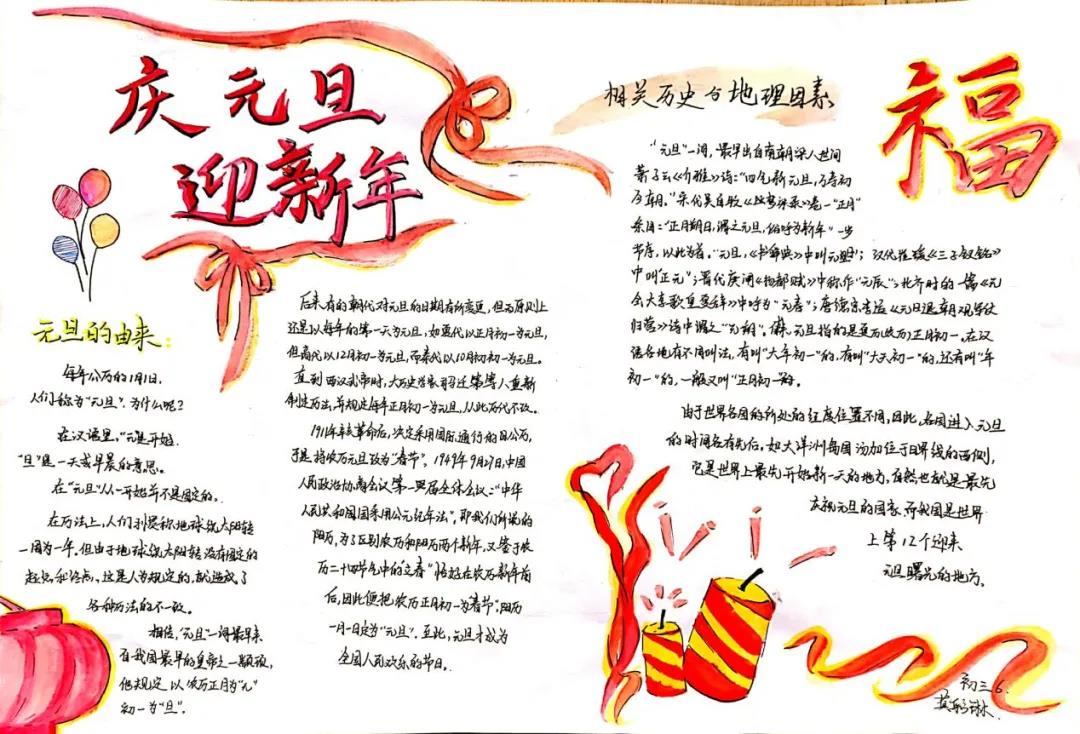 庆元旦
迎新年
元旦的由来:
每年公历的1月1日,
人们称为“元旦”.为什么呢?
在汉语里,“元”是开始.
“旦”是一天或早晨的意思。
在“元旦”从一开始并不是固定的.
在历法上,人们习惯称地球绕太阳转
一周为一年.但由于地球绕太阳转没有固定的
起点和终点,这是人为规定的,就造成了
各种历法的不一致。
相传,“元旦”一词最早来
自我国最早的皇帝之一颛顼,
他规定以农历正月为“元”
初一为“旦”.
后来有的朝代对元旦的日期有所变更,但在原则上
还是以每年的第一天为元旦,如夏代以正月初一为元旦,
但商代以12月初一为元旦,而秦代以10月初一为元旦。
直到西汉武帝时,大历史学家司马迁等人重新
制定历法,并规定每年正月初一为元旦,从此历代不改。
1911年辛亥革命后,决定采用国际通行的公历,
于是将农历元旦改为“春节”.1949年9月27日,中国
人民政治协商会议第一届全体会议:“中华
人民共和国采用公元纪年法”,即我们所说的
阳历,为了区别农历和阳历两个新年,又鉴于农
历二十四节气中的“立春”恰好在农历新年前
后,因此便把农历正月初一为“春节”,阳历
一月一日定为“元旦”.至此,元旦才成为
全国人民欢乐的节日.
相关历史与地理因素
“元旦”一词,最早出自南朝梁人
萧子云《介雅》诗:“四气新元旦,万寿初
今朝.”宋代吴自牧《梦粱录》卷一“正月”
条目:“正月朔日,谓之元旦,俗呼为新年”一岁
节序,以此为首.“元旦,《书舜典》中叫元”;汉代崔瑗《三子钗铭》
中叫“正元”;晋代庾阐《扬都赋》中称作“元辰”;北齐时的一篇《元
会大享歌皇夏辞》中呼为“元春”;唐德宗李适《元日退朝观军仗
归营》诗中谓之“元朔”.元旦指的是夏历(农历)正月初一.在汉
语各地有不同叫法,有叫“大年初一”的,有叫“大天初一”的,还有叫“年
初一”的,一般又叫“正月初一”.
由于世界各国的所处的经度位置不同,因此,各国进入元旦
的时间各有先后.如大洋洲岛国汤加位于日界线的西侧,
它是世界上最先开始新一天的地方,自然也就是最先
庆祝元旦的国家.而我国是世界
上第12个迎来
元旦曙光的地方.
福
初三6.